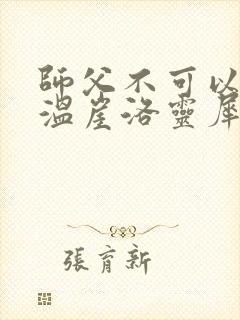 師父不可以
溫崖洛靈犀
張育新